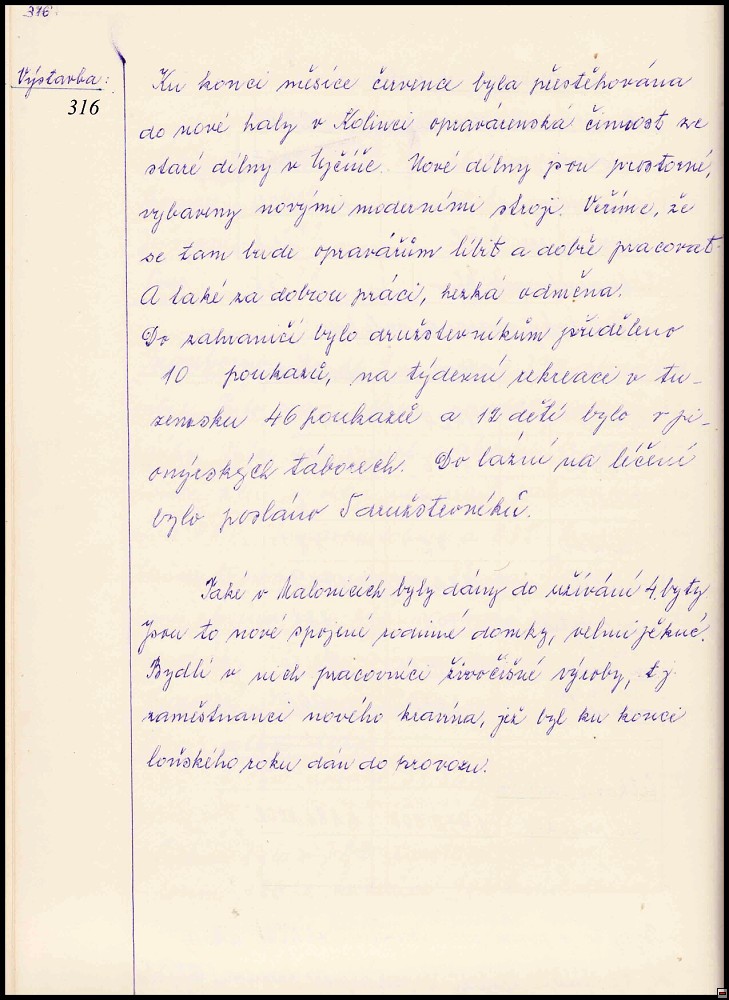 316
Výstavba:
316
Ku konci měsíce července byla přestěhována
do nové haly v Kolinci opravárenská činnost ze
staré dílny v Ujčíně. Nové dílny jsou prostorné,
vybaveny novými moderními stroji. Věříme, že
se tam bude opravářům líbit a dobře pracovat.
A také za dobrou práci, hezká odměna.
Do zahraničí bylo družstevníkům přiděleno
10 poukazů, na týdenní rekreaci v tu-
zemsku 46 poukazů a 12 dětí bylo v pi-
onýrských táborech. Do lázní na léčení
bylo posláno 5 družstevníků.
Také v Malonicích byly dány do užívání 4 byty
Jsou to nové spojené rodinné domky, velmi pěkné.
Bydlí v nich pracovníci živočišné výroby, tj
zaměstnanci nového kravína, jež byl ku konci
loňského roku dán do provozu.